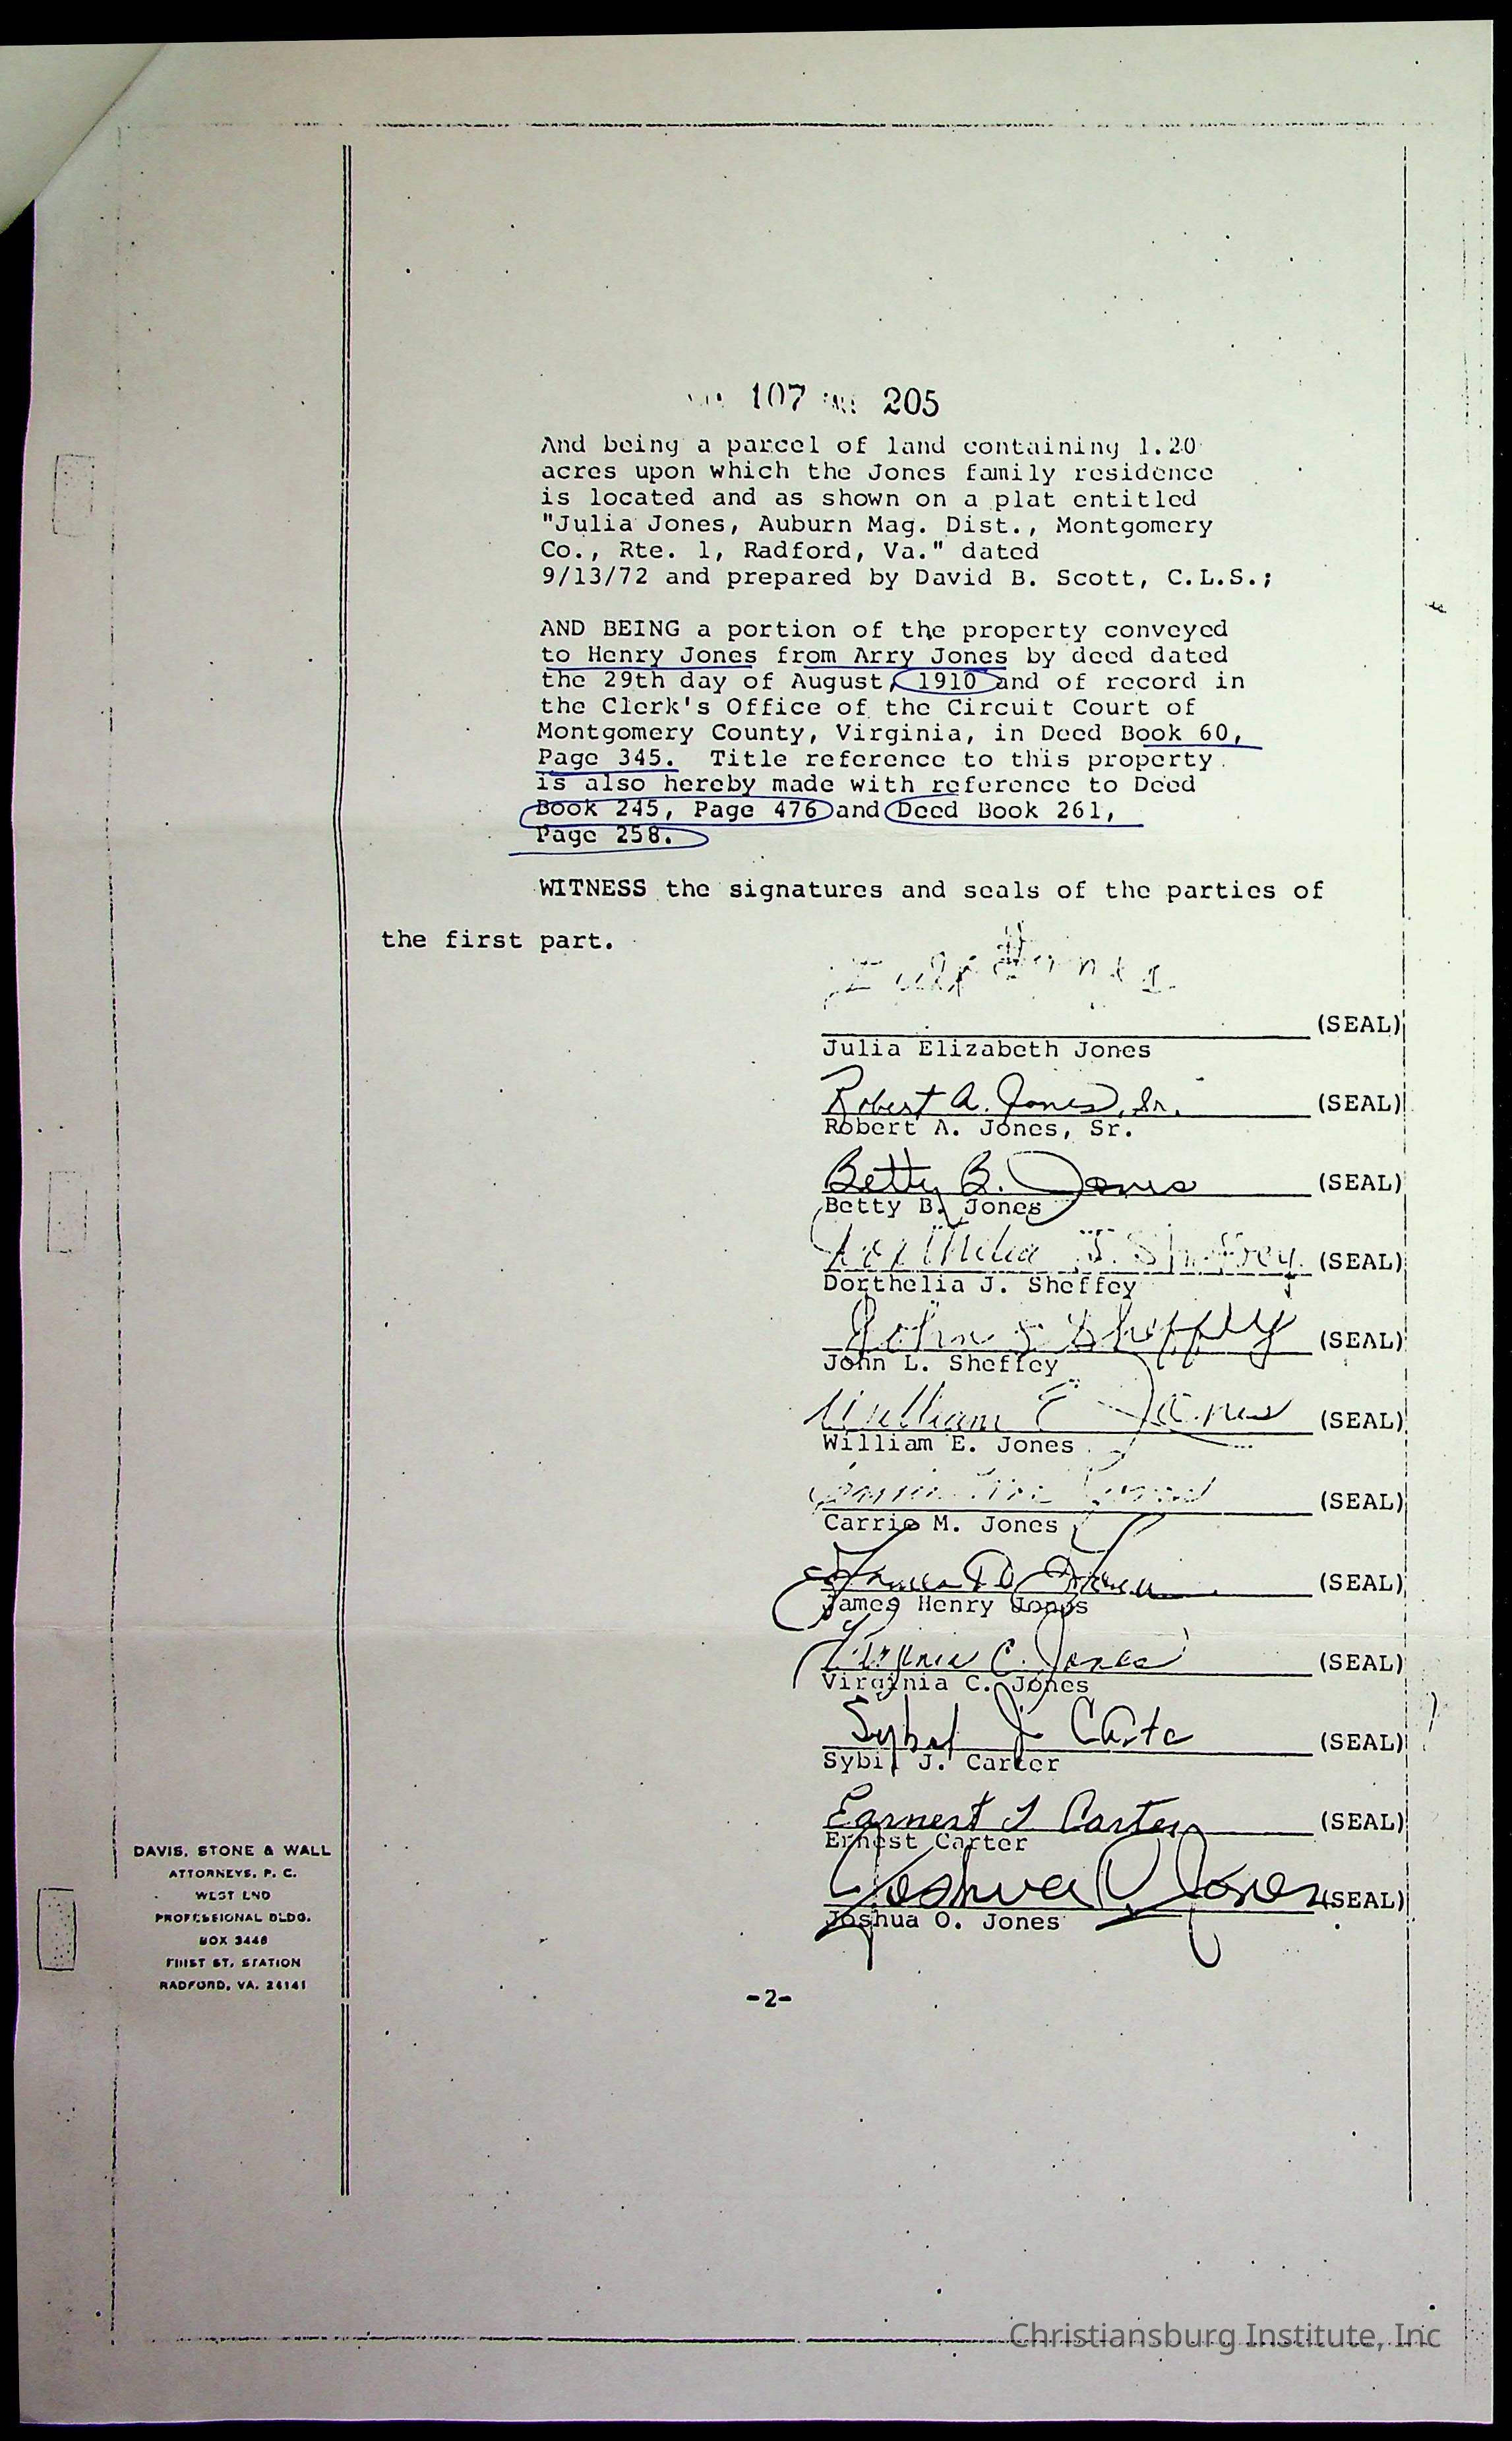 107 205
And being a parcel of land containing 1.20
acres upon which the Jones family residence
is located and as shown on a plat entitled
"Julia Jones, Auburn Mag. Dist., Montgomery
Co., Rte. 1, Radford, Va." dated
9/13/72 and prepared by David B. Scott, C.L.S.;
AND BEING a portion of the property conveyed
to Henry Jones from Arry Jones by deed dated
the 29th day of August, 1910 and of record in
the Clerk's Office of the Circuit Court of
Montgomery County, Virginia, in Deed Book 60,
Page 345. Title reference to this property
is also hereby made with reference to Deed
Book 245, Page 476 and Deed Book 261,
Page 258.
WITNESS the signatures and seals of the parties of
the first part.
(SEAL)
Julia Elizabeth Jones
Robert A. Jones, Sr. (SEAL)
Robert A. Jones, Sr.
Betty B. Jones (SEAL)
Betty B. Jones
Dorthelia J. Sheffey (SEAL)
Dorthelia J. Sheffey
John L. Sheffey (SEAL)
John L. Sheffey
William E Jones (SEAL)
William E. Jones
(SEAL)
Carrie M. Jones
(SEAL)
James Henry Jones
Virginia C. Jones (SEAL)
Virginia C. Jones
Sybil J. Carter (SEAL)
Sybil J. Carter
Earnest L Carter (SEAL)
Ernest Carter
Joshua O. Jones (SEAL)
Joshua O. Jones
DAVIS, STONE & WALL
ATTORNEYS, P. C.
WEST END
PROFESSIONAL BLDG.
BOX 3448
FIRST ST. STATION
RADFORD, VA. 24141
-2-
Christiansburg Institute, Inc